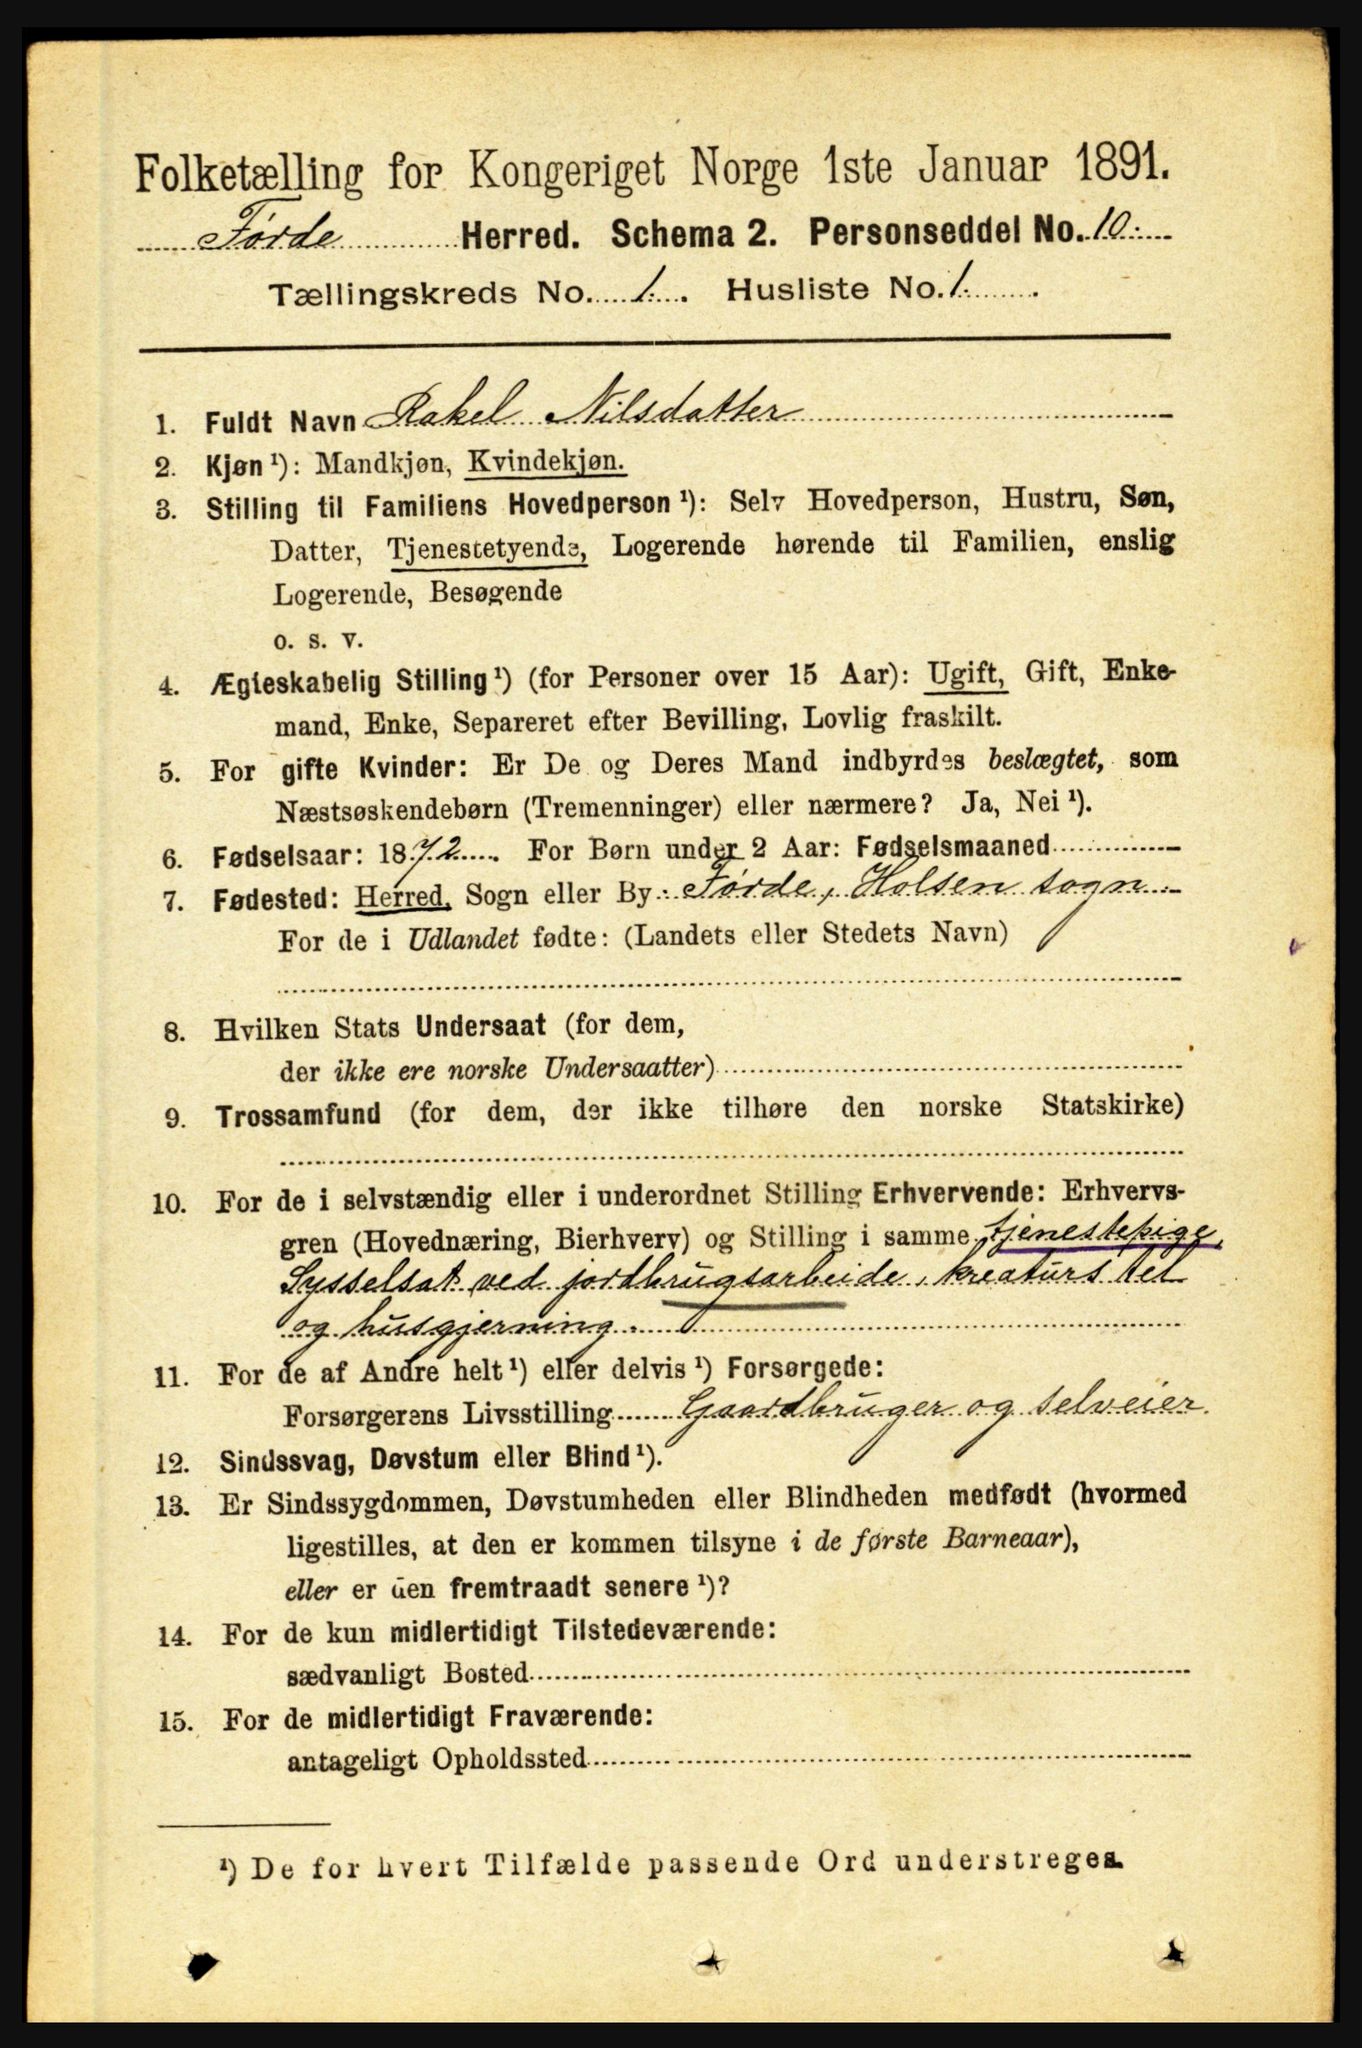 Folketælling for Kongeriget Norge 1ste Januar 1891.
Førde Herred. Schema 2. Personseddel No. 10.
Tællingskreds No. 1. Husliste No. 1.
1. Fuldt Navn Rakel Nilsdatter
2. Kjøn¹): Mandkjøn, Kvindekjøn.
3. Stilling til Familiens Hovedperson¹): Selv Hovedperson, Hustru, Søn,
Datter, Tjenestetyende, Logerende hørende til Familien, enslig
Logerende, Besøgende
o. s. v.
4. Ægteskabelig Stilling¹) (for Personer over 15 Aar): Ugift, Gift, Enke-
mand, Enke, Separeret efter Bevilling, Lovlig fraskilt.
5. For gifte Kvinder: Er De og Deres Mand indbyrdes beslægtet, som
Næstsøskendebørn (Tremenninger) eller nærmere? Ja, Nei¹).
6. Fødselsaar: 1872. For Børn under 2 Aar: Fødselsmaaned
7. Fødested: Herred, Sogn eller By Førde, Holsen sogn
For de i Udlandet fødte: (Landets eller Stedets Navn)
8. Hvilken Stats Undersaat (for dem,
der ikke ere norske Undersaatter)
9. Trossamfund (for dem, der ikke tilhøre den norske Statskirke)
10. For de i selvstændig eller i underordnet Stilling Erhvervende: Erhvervs-
gren (Hovednæring, Bierhverv) og Stilling i samme tjenestepige,
Sysselsat ved jordbrugsarbeide, kreaturs tel
og husgjerning.
11. For de af Andre helt¹) eller delvis¹) Forsørgede:
Forsørgerens Livsstilling Gaardbruger og selveier
12. Sindssvag, Døvstum eller Blind¹).
13. Er Sindssygdommen, Døvstumheden eller Blindheden medfødt (hvormed
ligestilles, at den er kommen tilsyne i de første Barneaar),
eller er den fremtraadt senere¹)?
14. For de kun midlertidigt Tilstedeværende:
sædvanligt Bosted
15. For de midlertidigt Fraværende:
antageligt Opholdssted
¹) De for hvert Tilfælde passende Ord understreges.